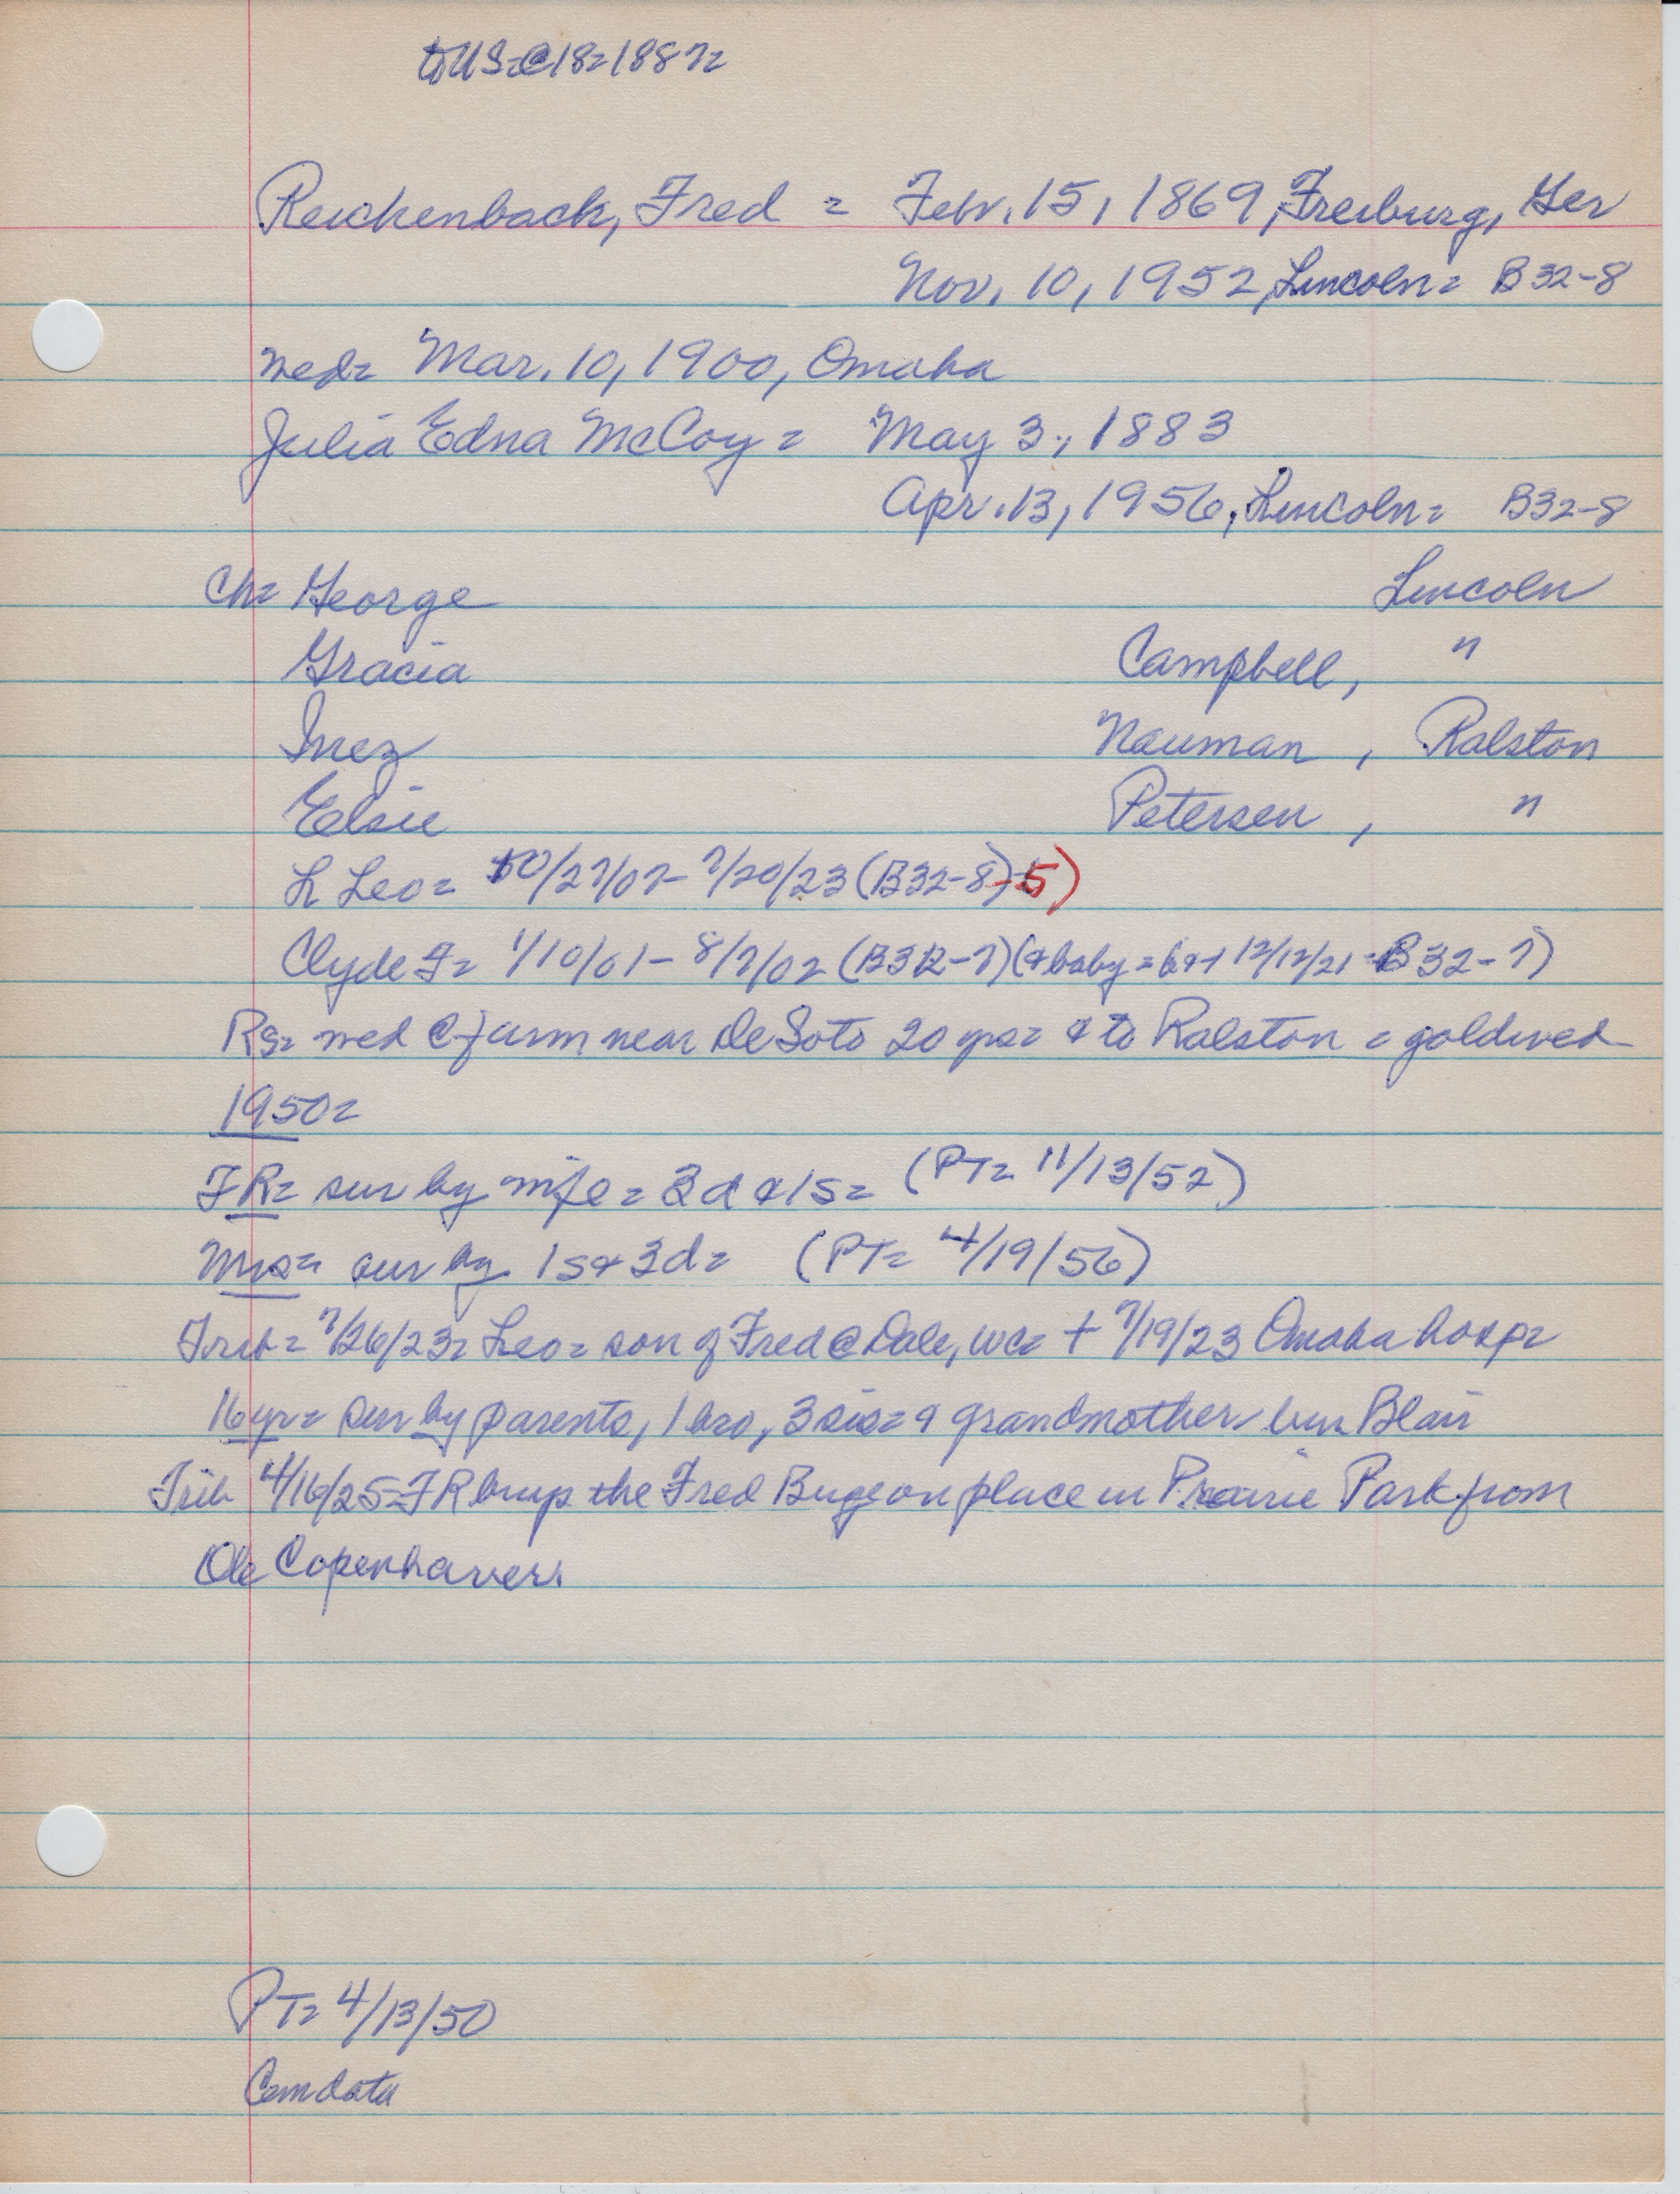 to US=@18=1887=
Reichenback, Fred = Febr. 15, 1869, Freiburg, Ger
Nov. 10, 1952, Lincoln= B32-8
wed= Mar. 10, 1900, Omaha
Julia Edna McCoy = May 3, 1883
Apr. 13, 1956, Lincoln= B32-8
Ch= George Lincoln
Gracia Campbell, "
Inez Nauman, Ralston
Elsie Petersen, "
L Leo= 10/27/07-7/20/23 (B32-8)-5)
Clyde F= 1/10/01-8/7/02 (B32-7) (& baby = b&+ 12/12/21 = B32-7)
Rs= wed @ farm near De Soto 20 yrs= & to Ralston = goldwed
1950=
FR= sur by wife = 3d & 1s= (PT= 11/13/52)
Mrs= sur by 1s & 3d= (PT= 4/19/56)
Trib= 7/26/23= Leo= son of Fred @ Dale, WC= + 7/19/23 Omaha hosp=
16yr= sur by parents, 1 bro, 3 sis= & grandmother Blair
Trib 4/16/25=FR buys the Fred place in Prairie Park from
Ole Copenhaver.
PT= 4/13/50
Cemdata